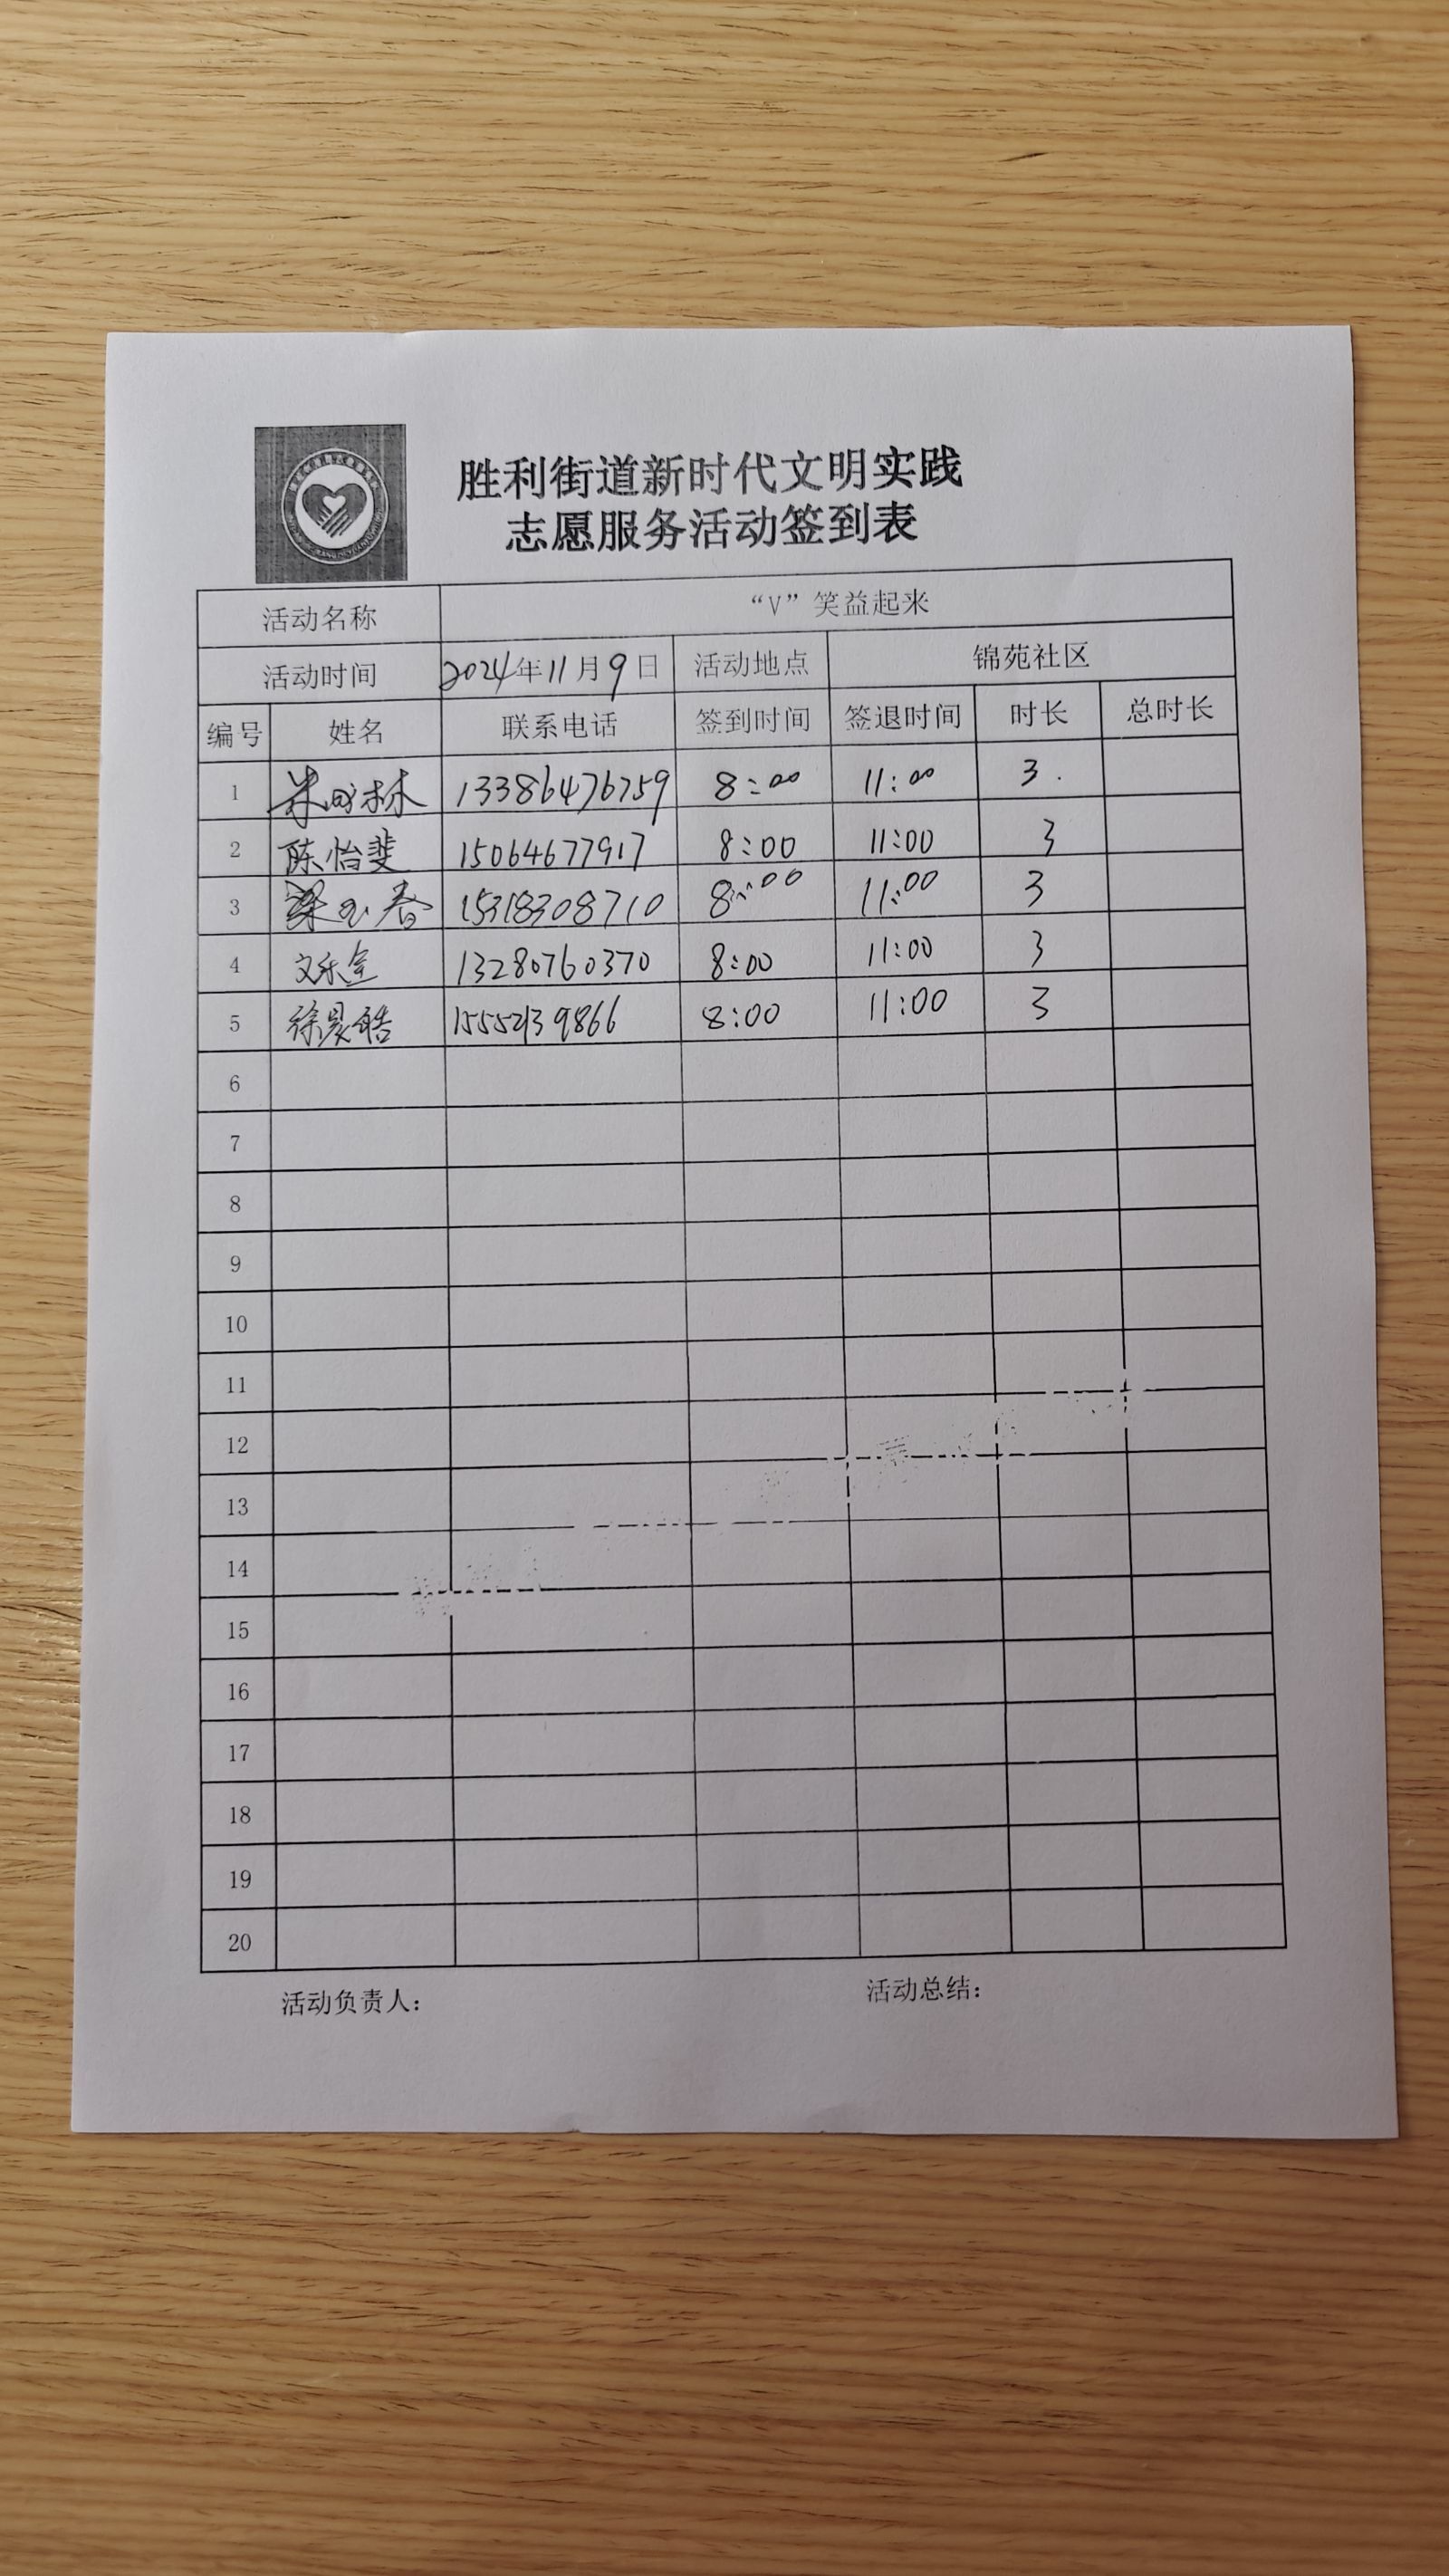 胜利街道新时代文明实践
志愿服务活动签到表
活动名称 “V”笑益起来
活动时间 2024年11月9日 活动地点 锦苑社区
编号 姓名 联系电话 签到时间 签退时间 时长 总时长
1 13386476759 8:00 11:00 3.
2 陈怡斐 15064677917 8:00 11:00 3
3 梁玉春 15318308710 8:00 11:00 3
4 文乐金 13280760370 8:00 11:00 3
5 徐晨皓 15552139866 8:00 11:00 3
6
7
8
9
10
11
12
13
14
15
16
17
18
19
20
活动负责人： 活动总结：